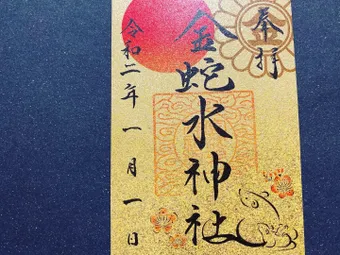 奉拝
金蛇水神社
令和二年一月一日